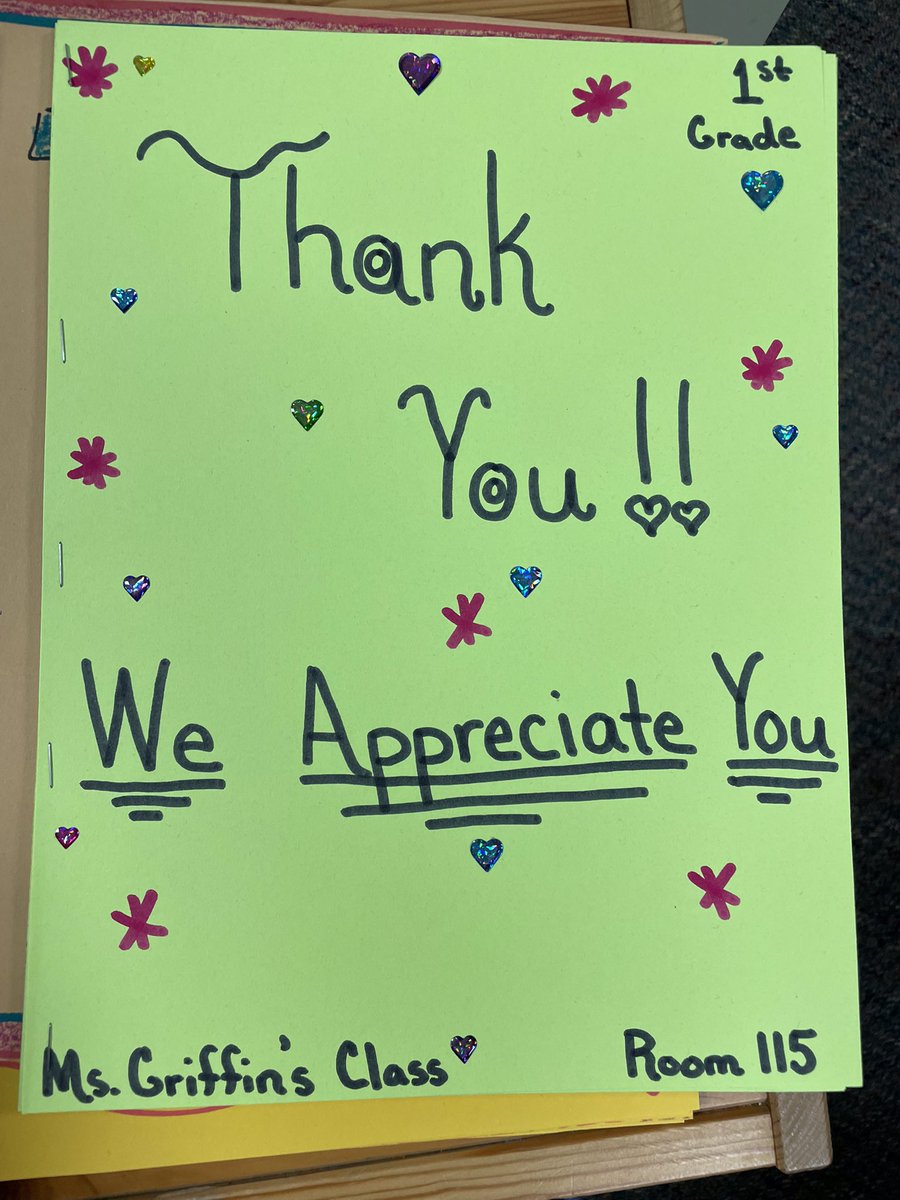 1st
Grade
Thank
You !!
We Appreciate You
Ms. Griffin's Class
Room 115